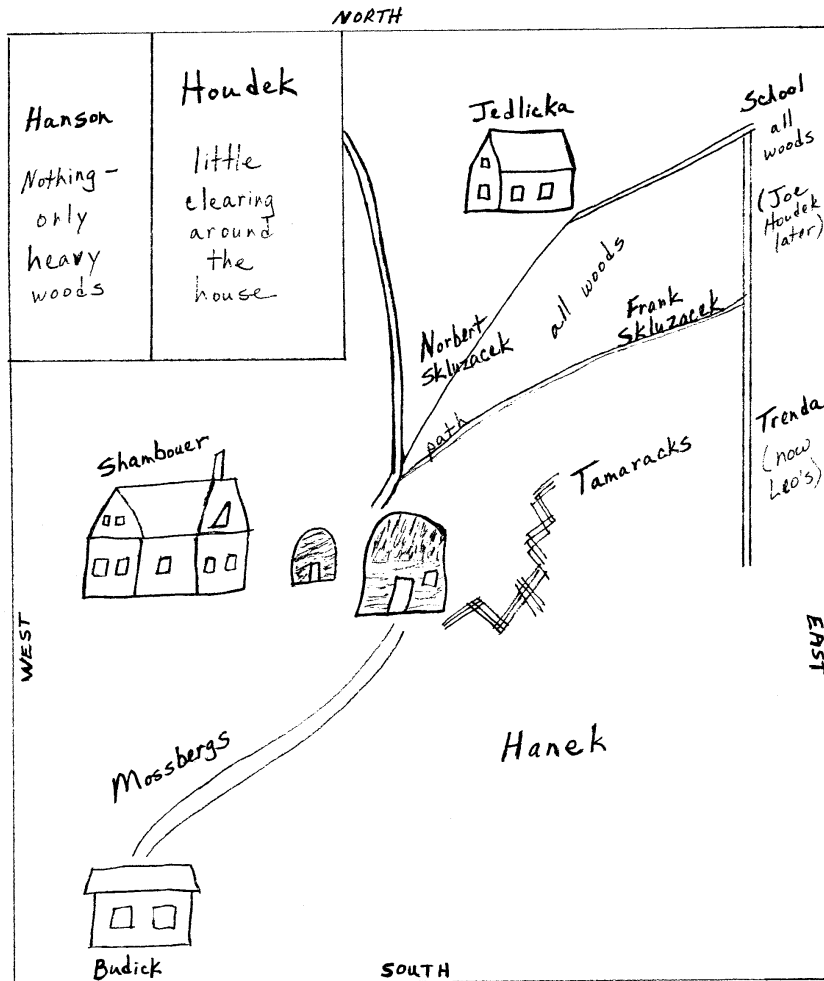 NORTH
Hanson
Nothing -
only
heavy
woods
Houdek
little
clearing
around
the
house
Jedlicka
School
all
woods
(Joe
Houdek
later)
Norbert
Skluzacek
all woods
Frank
Skluzacek
path
Trenda
(now
Leo's)
Shambouer
Tamaracks
WEST
EAST
Mossbergs
Hanek
Budick
SOUTH